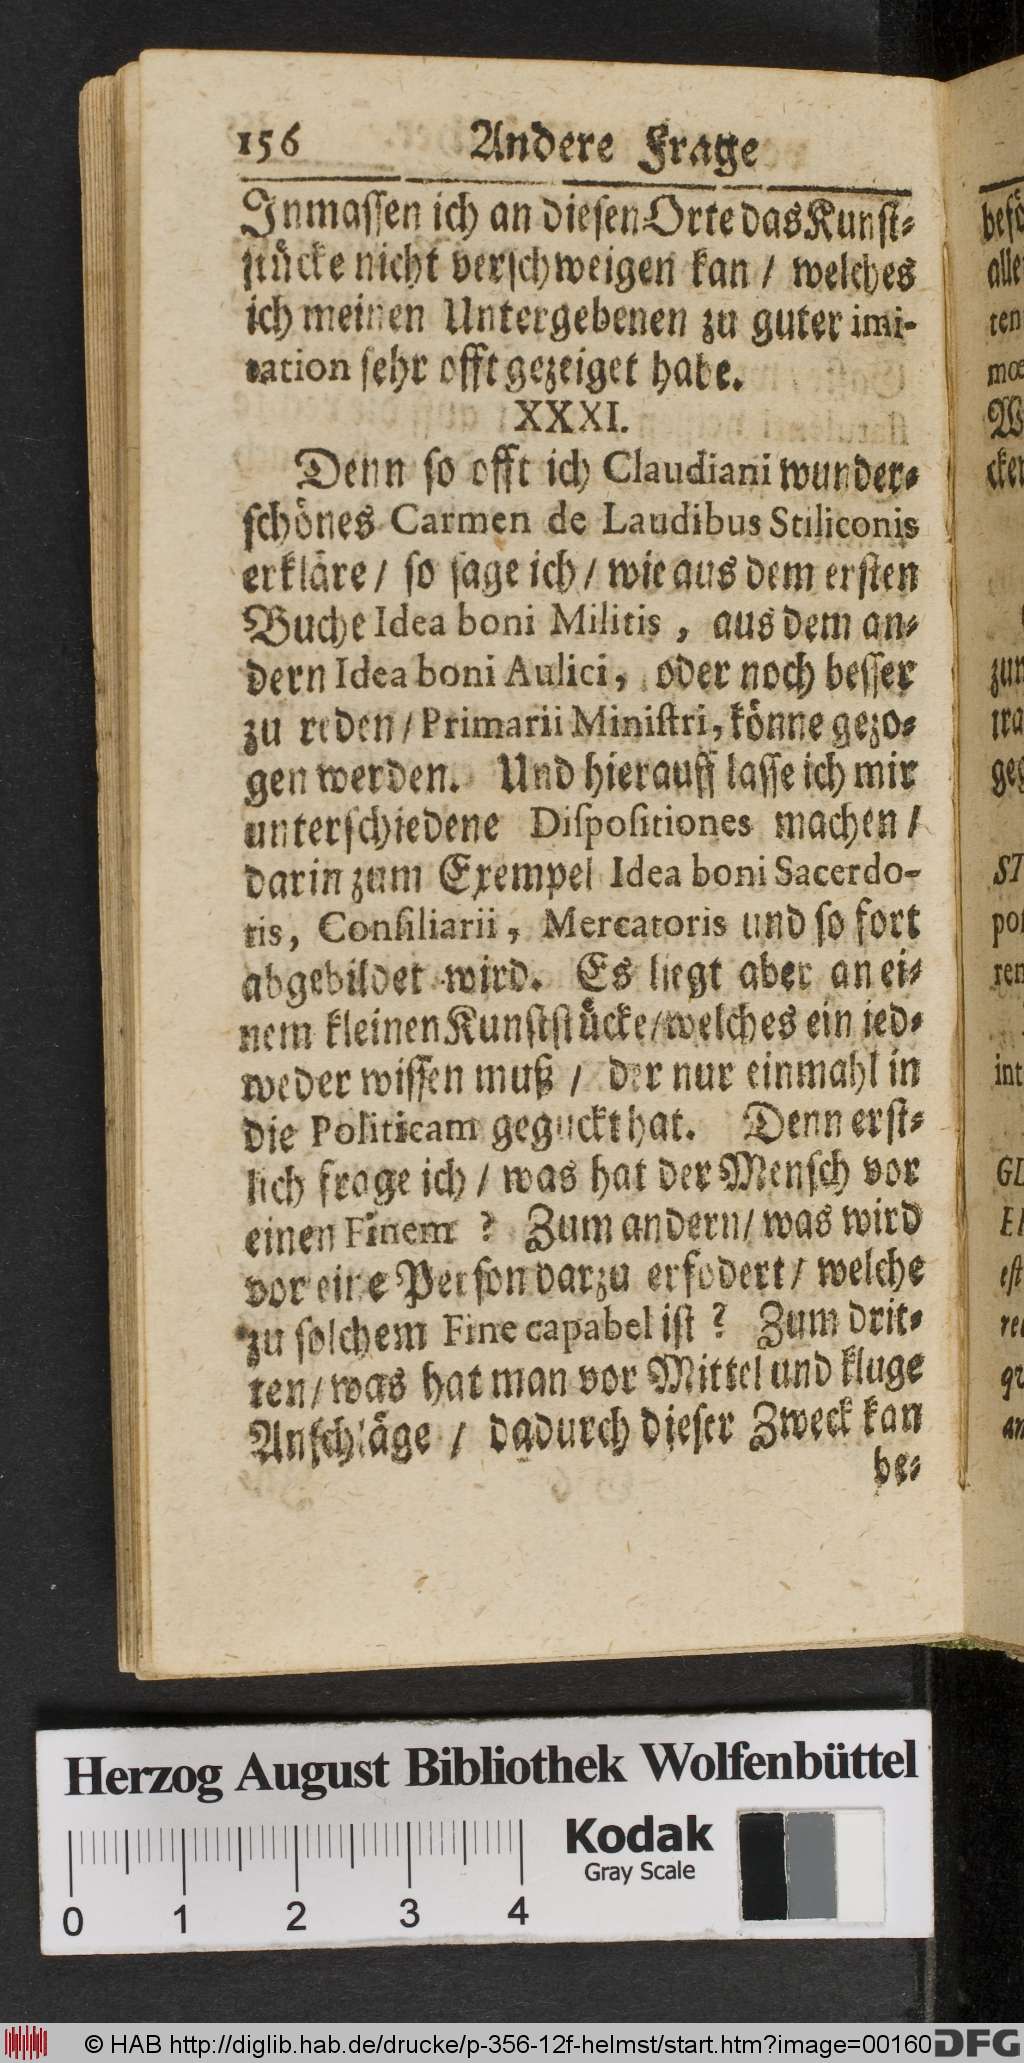 156 Andere Frage
Inmassen ich an diesen Orte das Kunst-
stücke nicht verschweigen kan / welches
ich meinen Untergebenen zu guter imi-
tation sehr offt gezeiget habe.
XXXI.
Denn so offt ich Claudiani wunder-
schönes Carmen de Laudibus Stiliconis
erkläre / so sage ich / wie aus dem ersten
Buche Idea boni Militis, aus dem an-
dern Idea boni Aulici, oder noch besser
zu reden / Primarii Ministri, könne gezo-
gen werden. Und hierauff lasse ich mir
unterschiedene Dispositiones machen /
darin zum Exempel Idea boni Sacerdo-
tis, Consiliarii, Mercatoris und so fort
abgebildet wird. Es liegt aber an ei-
nem kleinen Kunststücke / welches ein ied-
weder wissen muß / der nur einmahl in
die Politicam geguckt hat. Denn erst-
lich frage ich / was hat der Mensch vor
einen Finem? Zum andern / was wird
vor eine Person darzu erfodert / welche
zu solchem Fine capabel ist? Zum drit-
ten / was hat man vor Mittel und kluge
Anschläge / dadurch dieser Zweck kan
be-
befö
alle
ten
mœ
W
cken
zun
tra
geg
ST
pos
ren
int
GL
est
qv
an
Herzog August Bibliothek Wolfenbüttel
Kodak
Gray Scale
0 1 2 3 4
© HAB http://diglib.hab.de/drucke/p-356-12f-helmst/start.htm?image=00160
DFG